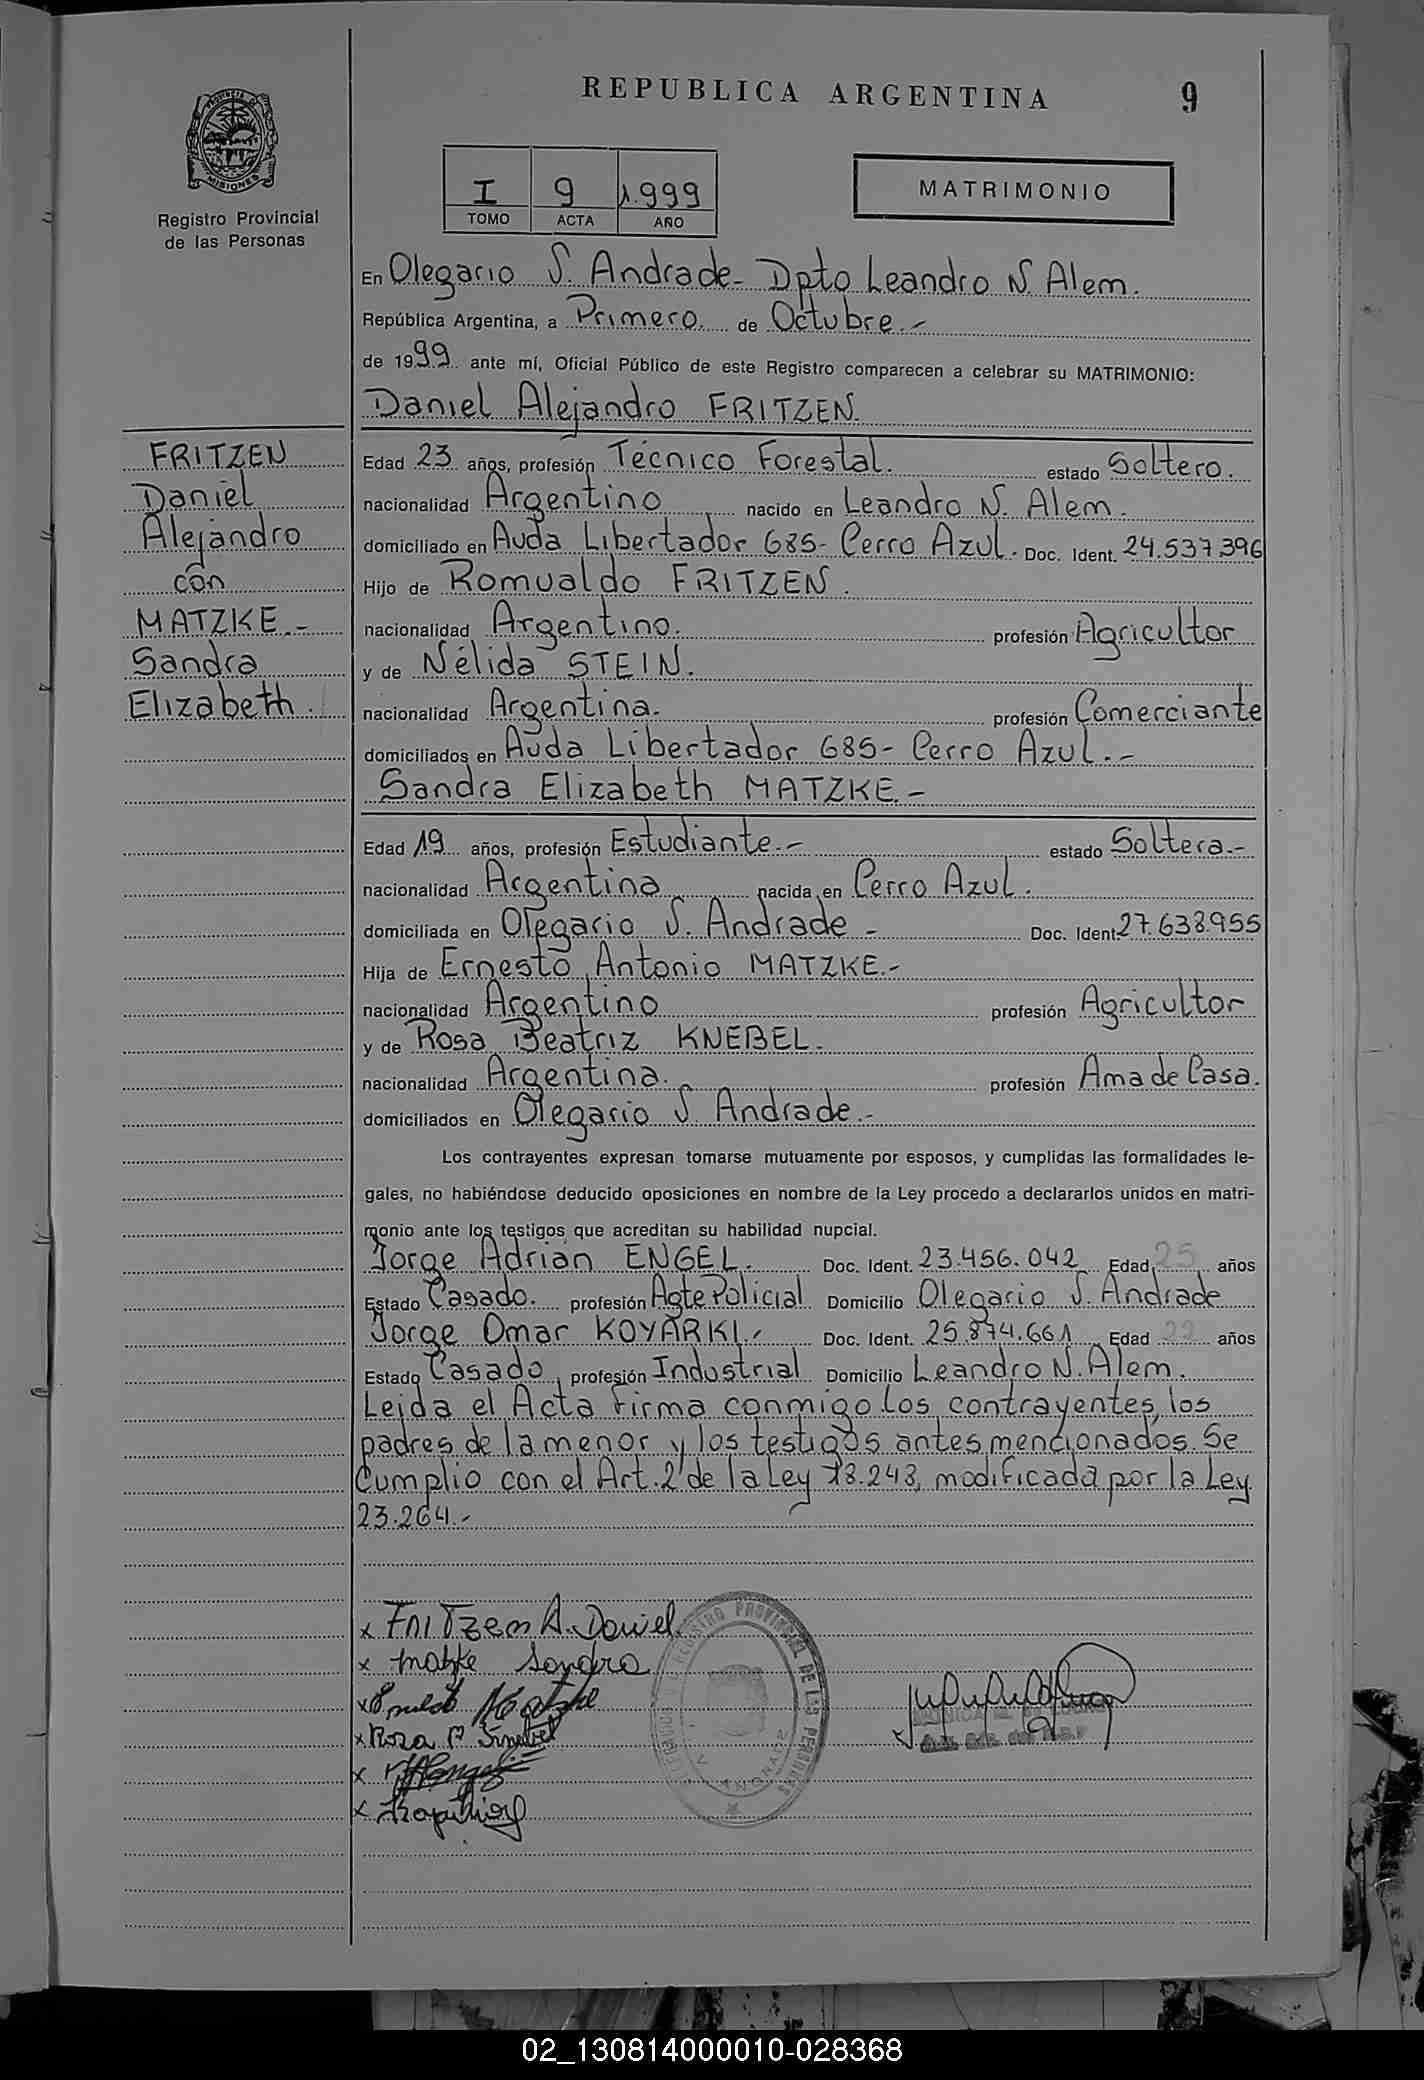 REPUBLICA ARGENTINA
9
MISIONES
Registro Provincial
de las Personas
I 9 1.999
TOMO ACTA AÑO
MATRIMONIO
En Olegario S. Andrade - Dpto Leandro N. Alem.
República Argentina, a Primero. de Octubre.-
de 1999 ante mí, Oficial Público de este Registro comparecen a celebrar su MATRIMONIO:
Daniel Alejandro FRITZEN.
FRITZEN
Daniel
Alejandro
con
MATZKE.-
Sandra
Elizabeth.
Edad 23 años, profesión Técnico Forestal. estado Soltero.
nacionalidad Argentino nacido en Leandro N. Alem.
domiciliado en Avda Libertador 685- Cerro Azul. Doc. Ident. 24.537.396
Hijo de Romualdo FRITZEN.
nacionalidad Argentino. profesión Agricultor
y de Nélida STEIN.
nacionalidad Argentina. profesión Comerciante
domiciliados en Avda Libertador 685- Cerro Azul.-
Sandra Elizabeth MATZKE.-
Edad 19 años, profesión Estudiante.- estado Soltera.-
nacionalidad Argentina nacida en Cerro Azul.
domiciliada en Olegario S. Andrade - Doc. Ident. 27.638.955
Hija de Ernesto Antonio MATZKE.-
nacionalidad Argentino profesión Agricultor
y de Rosa Beatriz KNEBEL.
nacionalidad Argentina. profesión Ama de Casa.
domiciliados en Olegario S. Andrade.-
Los contrayentes expresan tomarse mutuamente por esposos, y cumplidas las formalidades le-
gales, no habiéndose deducido oposiciones en nombre de la Ley procedo a declararlos unidos en matri-
monio ante los testigos que acreditan su habilidad nupcial.
Jorge Adrián ENGEL. Doc. Ident. 23.456.042 Edad 25 años
Estado Casado. profesión Agte Policial Domicilio Olegario S. Andrade
Jorge Omar KOYARKI.- Doc. Ident. 25.874.661 Edad 22 años
Estado Casado profesión Industrial Domicilio Leandro N. Alem.
Leida el Acta firma conmigo los contrayentes, los
padres de la menor y los testigos antes mencionados. Se
Cumplio con el Art. 2 de la Ley 18.248, modificada por la Ley
23.264.-
x FRITZEN A. Daniel
x Matzke Sandra
x Ernesto Matzke
x Rosa B Knebel
x
x
REGISTRO PROVINCIAL DE LAS PERSONAS
02_130814000010-028368